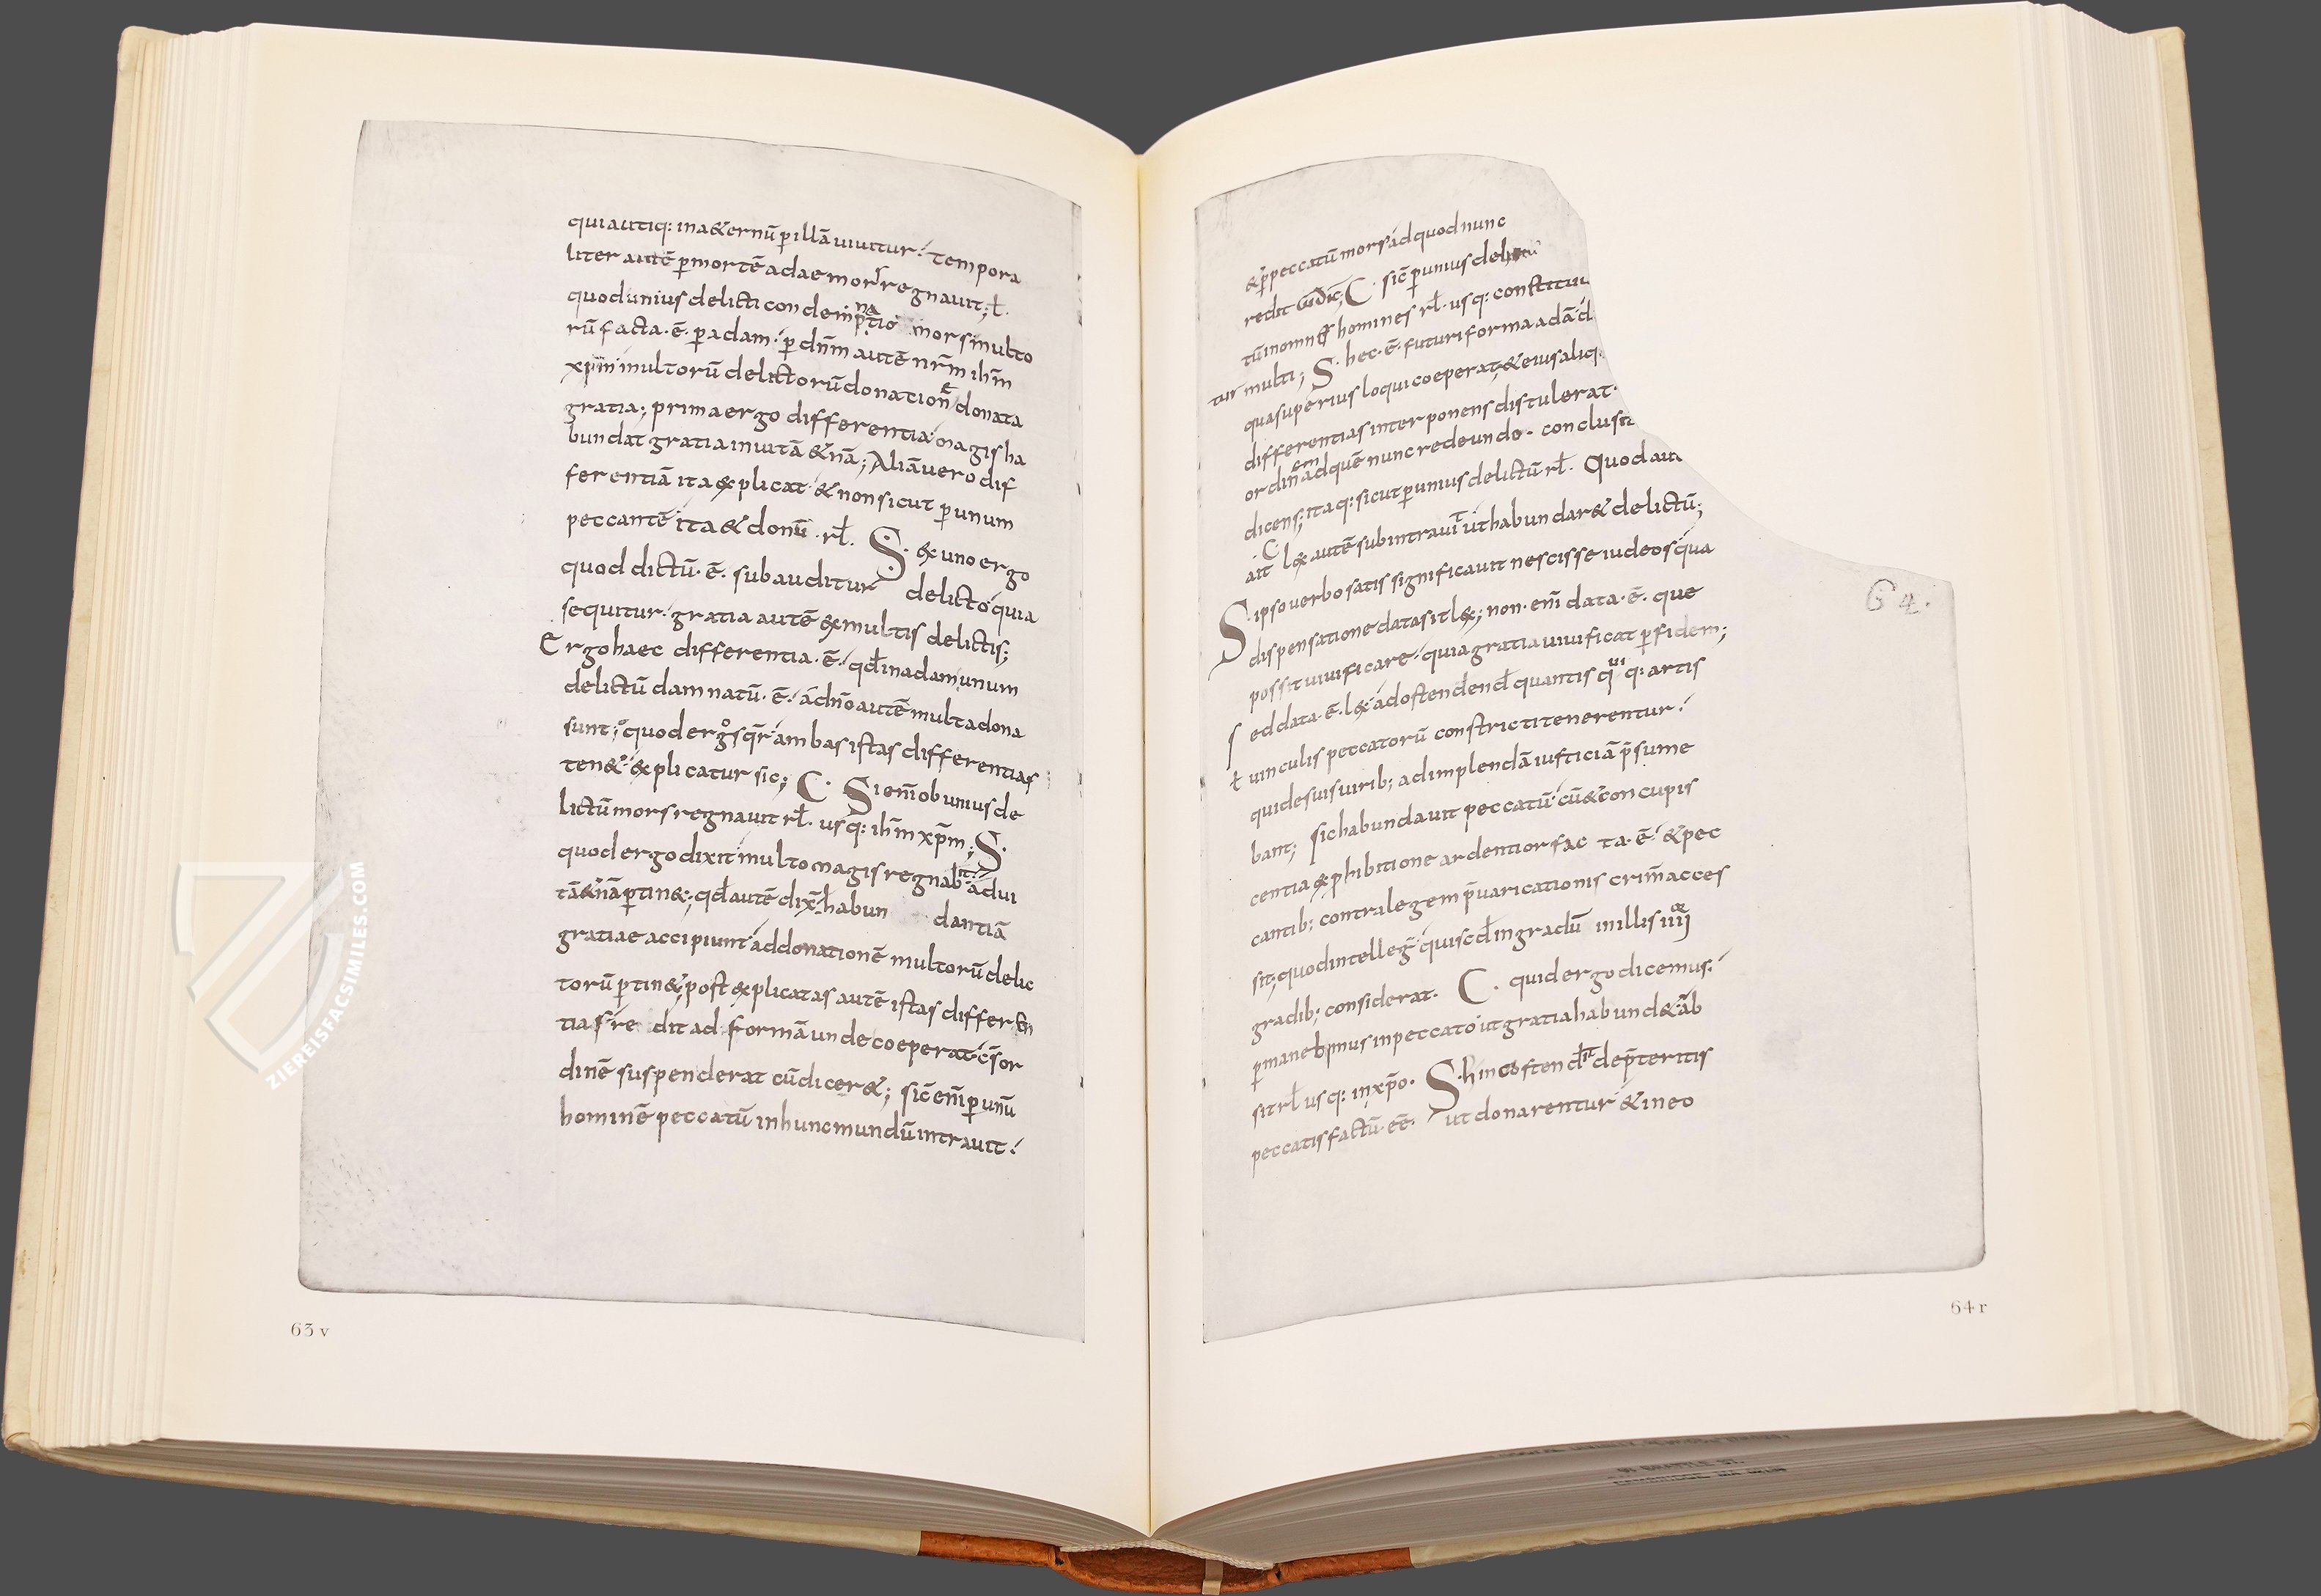 qui autiq: in a&ernū ꝑ illā uiuitur: tempora
liter autē ꝑ mortē adae morſ regnauit; ł.
quod unius delicti condemp̄natio morſ multo
rū facta · ē · ꝑ adam: ꝑ dn̄m autē nr̄m ih̄m
xp̄m multorū delictorū donationē donata
gratia; prima ergo differentia magis ha
bundat gratia in uitā &nā; Aliā uero dif
ferentiā ita explicat & non sicut ꝑ unum
peccantē ita & donū · rł. S · ex uno ergo
quod dictū · ē · subauditur delicto quia
sequitur · gratia autē ex multis delictis;
Ergo haec differentia · ē · qd̄ in adam unum
delictū damnatū · ē · a dn̄o autē multa dona
sunt; quod ergo sqr̄ ambas istas differentias
ten& explicatur sic; C · Si enī ob unius de
lictū mors regnauit rł · usq: ih̄m xp̄m; S ·
quod ergo dixit multo magis regnabit ad ui
tā &nā ꝑtin&; qd̄ autē dix̄ habun dantiā
gratiae accipiunt ad donationē multorū delic
torū ꝑtin&; post explicatas autē istas differen
tias re dit ad formā unde coeperat
dinē suspenderat cū dicer&; sic enī ꝑ unū
hominē peccatū in hunc mundū intrauit:
& ꝑ peccatū mors ad quod nunc
redit C · sic ꝑ unius
homines rł · usq: constitu
tur multi; S · hec · ē · futuri forma adā d
qua superius loqui coeperat & eius aliq
differentias interponens distulerat ·
ordinem ad quē nunc redeundo · conclusi
dicens; itaq: sicut ꝑ unius delictū rł · Quod au
ait C lex autē subintrauit ut habundar& delictū;
S ipso uerbo satis significauit nescisse iudeos qua
dispensatione data sit lex; non · enī data · ē · que
possit uiuificare · quia gratia uiuificat ꝑ fidem;
sed data · ē · lex ad ostendend quantis artis
uinculis peccatorū constricti tenerentur:
qui de suis uirib; ad implendā iusticiā p̄sume
bant; sic habundauit peccatū cū & concupis
centia ex ꝓhibitione ardentior fac ta · ē · & pec
cantib; contra legem p̄uaricationis crim̄ acces
sit; quod intelleḡ quisq̄ in gradū in illis iiii
gradib; considerat · C · quid ergo dicemus:
ꝑmanebimus in peccato ut gratia habund& ab
sit rł usq: in xp̄o · S · hinc ostendit de p̄teritis
peccatis factū · eē · ut donarentur & in eo
64.
63 v
64 r
ZIEREISFACSIMILES.COM